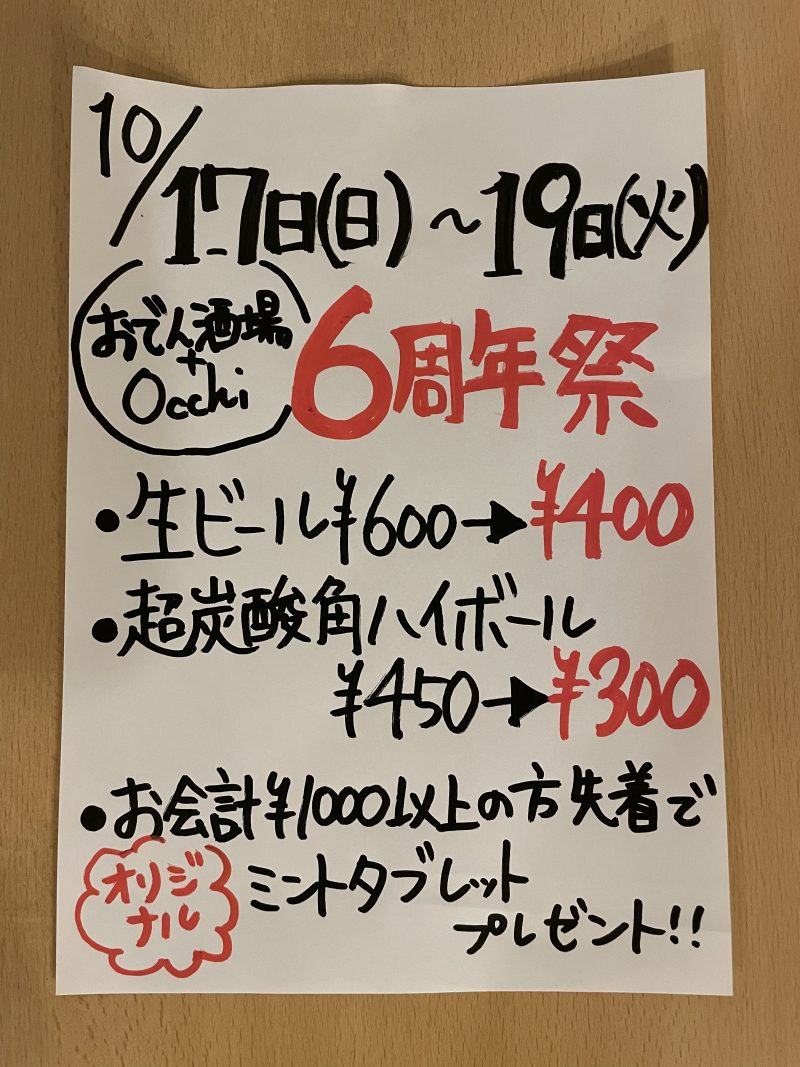 10/17日(日)～19日(火)
おでん酒場
+
Occhi
6周年祭
•生ビール¥600→¥400
•超炭酸角ハイボール
¥450→¥300
•お会計¥1000以上の方失着で
オリジ
ナル
ミントタブレット
プレゼント!!